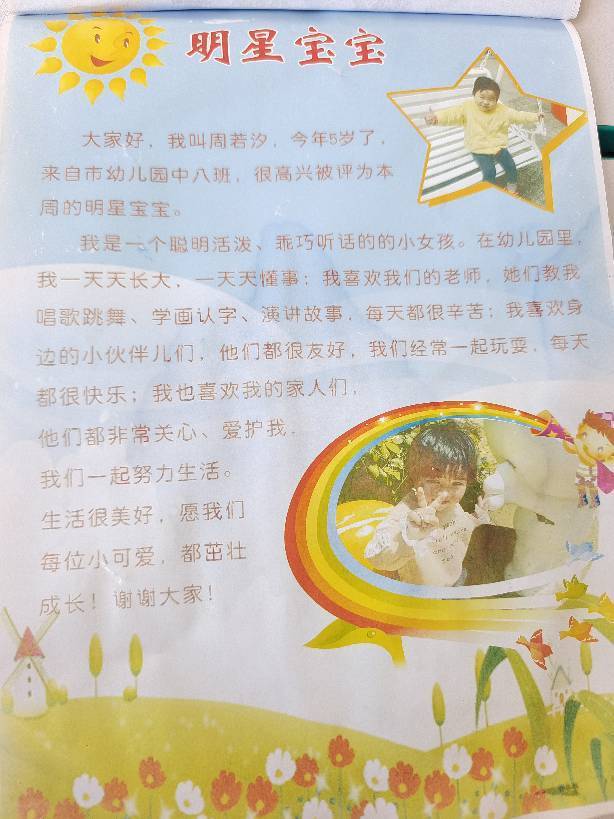 明星宝宝
大家好，我叫周若汐，今年5岁了，
来自市幼儿园中八班，很高兴被评为本
周的明星宝宝。
我是一个聪明活泼、乖巧听话的的小女孩。在幼儿园里，
我一天天长大，一天天懂事；我喜欢我们的老师，她们教我
唱歌跳舞、学画认字、演讲故事，每天都很辛苦；我喜欢身
边的小伙伴儿们，他们都很友好，我们经常一起玩耍，每天
都很快乐；我也喜欢我的家人们，
他们都非常关心、爱护我，
我们一起努力生活。
生活很美好，愿我们
每位小可爱，都茁壮
成长！谢谢大家！